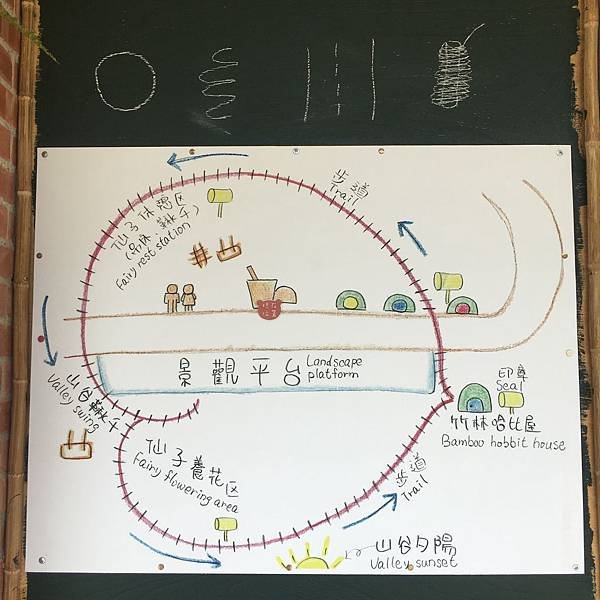 步道
Trail
仙子休憩区
(吊床、鞦千)
Fairy rest station
景觀平台
Landscape
platform
山谷鞦千
Valley swing
印章
Seal
竹林哈比屋
Bamboo hobbit house
仙子養花区
Fairy flowering area
步道
Trail
山谷夕陽
Valley sunset